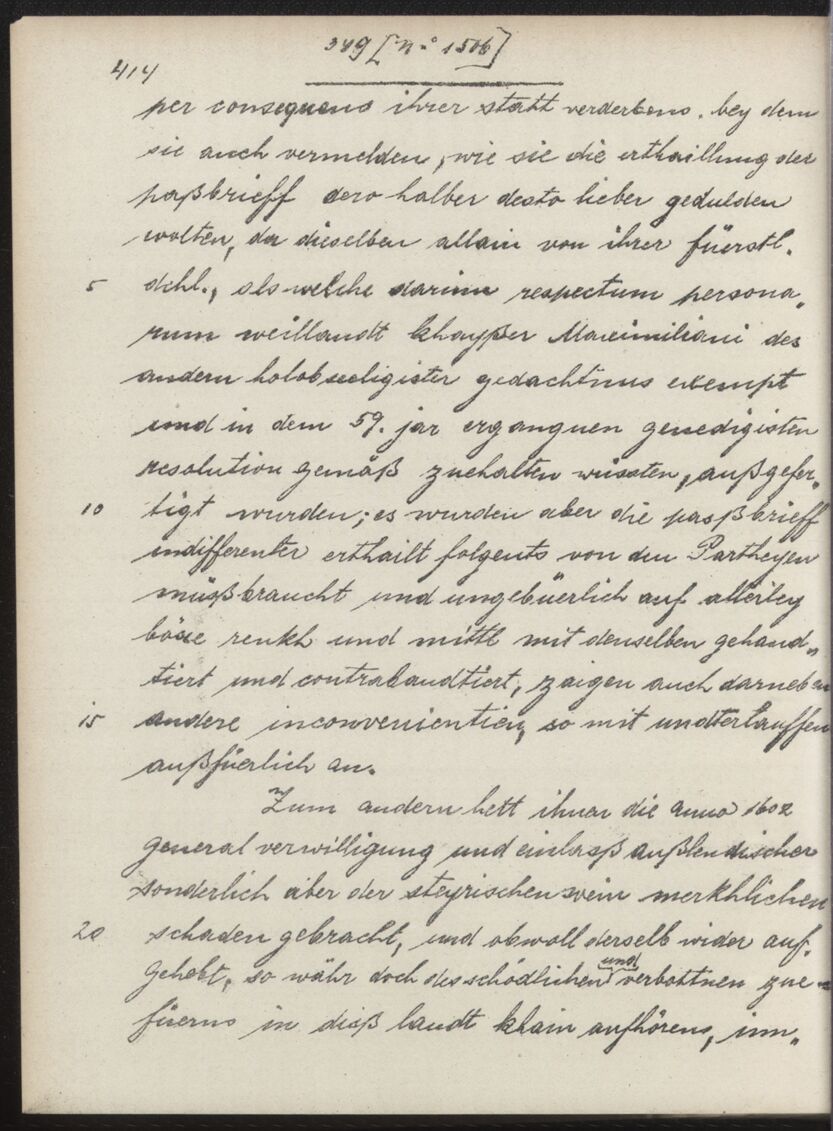 389 [N.° 1506]
414
per consequens ihrer statt verderbens, bey dem
sie auch vermelden, wie sie die erthaillung der
paßbrieff dero halber desto lieber gedulden
wolten, da dieselben allain von ihrer füerstl.
5 dchl., als welche darinn respectum persona„
rum weillandt khayßer Maximiliani des
andern holobseeligister gedachtnus exempt
und in dem 59. jar erganguen genedigisten
resolution gemäß zuehalten wüssten, außgefer„
10 tigt wurden; es wurden aber die paßbrieff
indifferenter erthailt folgents von den Partheyen
müßbraucht und ungebüerlich auf allerley
böse renkh und mittl mit denselben gehand„
tiert und contrabandtiert, zaigen auch darneben
15 andere inconvenientien, so mit undterlauffen
außfüerlich an.
Zum andern hett ihnen die anno 1602
general verwilligung und einlasß außlendischer
sonderlich aber der steyrischen wein merkhlichen
20 schaden gebracht, und obwoll derselb wider auf„
gehebt, so währ doch des schödlichen und verbottnen zue„
füerns in diß landt khain aufhörens, inn„